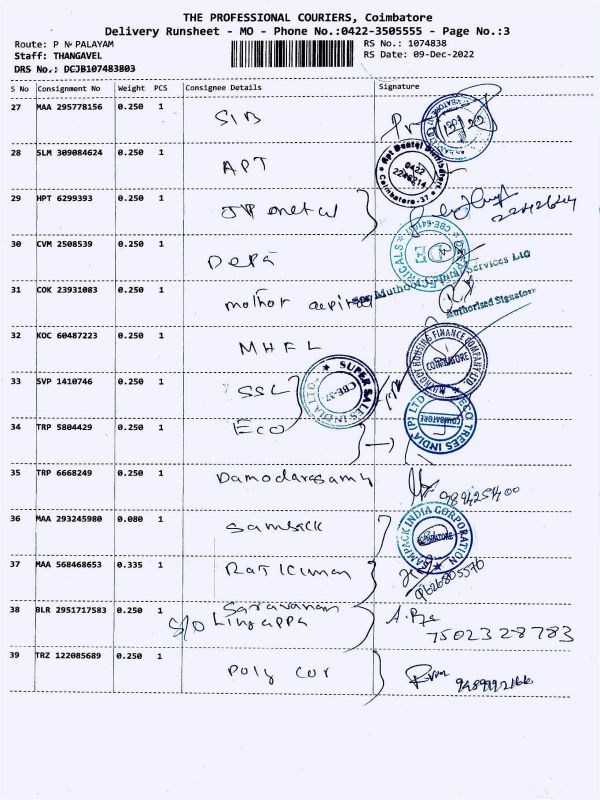 THE PROFESSIONAL COURIERS, Coimbatore
Delivery Runsheet - MO - Phone No.:0422-3505555 - Page No.:3
Route: P N PALAYAM
RS No.: 1074838
Staff: THANGAVEL
RS Date: 09-Dec-2022
DRS No.: DCJB107483803
S No Consignment No Weight PCS Consignee Details Signature
27 MAA 295778156 0.250 1 SIB
28 SLM 309084624 0.250 1 APT
Apt Dental Distributors
0422
2246214
Coimbatore-37
29 HPT 6299393 0.250 1
30 CVM 2508539 0.250 1 Depa
31 COK 23931083 0.250 1
Services Ltd
Authorised Signatory
32 KOC 60487223 0.250 1 MHFL
HOUSING FINANCE COMPANY LTD.
COIMBATORE
33 SVP 1410746 0.250 1 SSL
SUPER SALES INDIA LTD.
CBE-37
34 TRP 5804429 0.250 1 Eco
ECO TREES INDIA (P) LTD
COIMBATORE
35 TRP 6668249 0.250 1 Damodarasamy
36 MAA 293245980 0.080 1
SAMPACK INDIA CORPORATION
37 MAA 568468653 0.335 1 Rajkumar
9626805576
38 BLR 2951717583 0.250 1 Saravanan
S/O Lingappa
7502328783
39 TRZ 122085689 0.250 1 Poly Cor